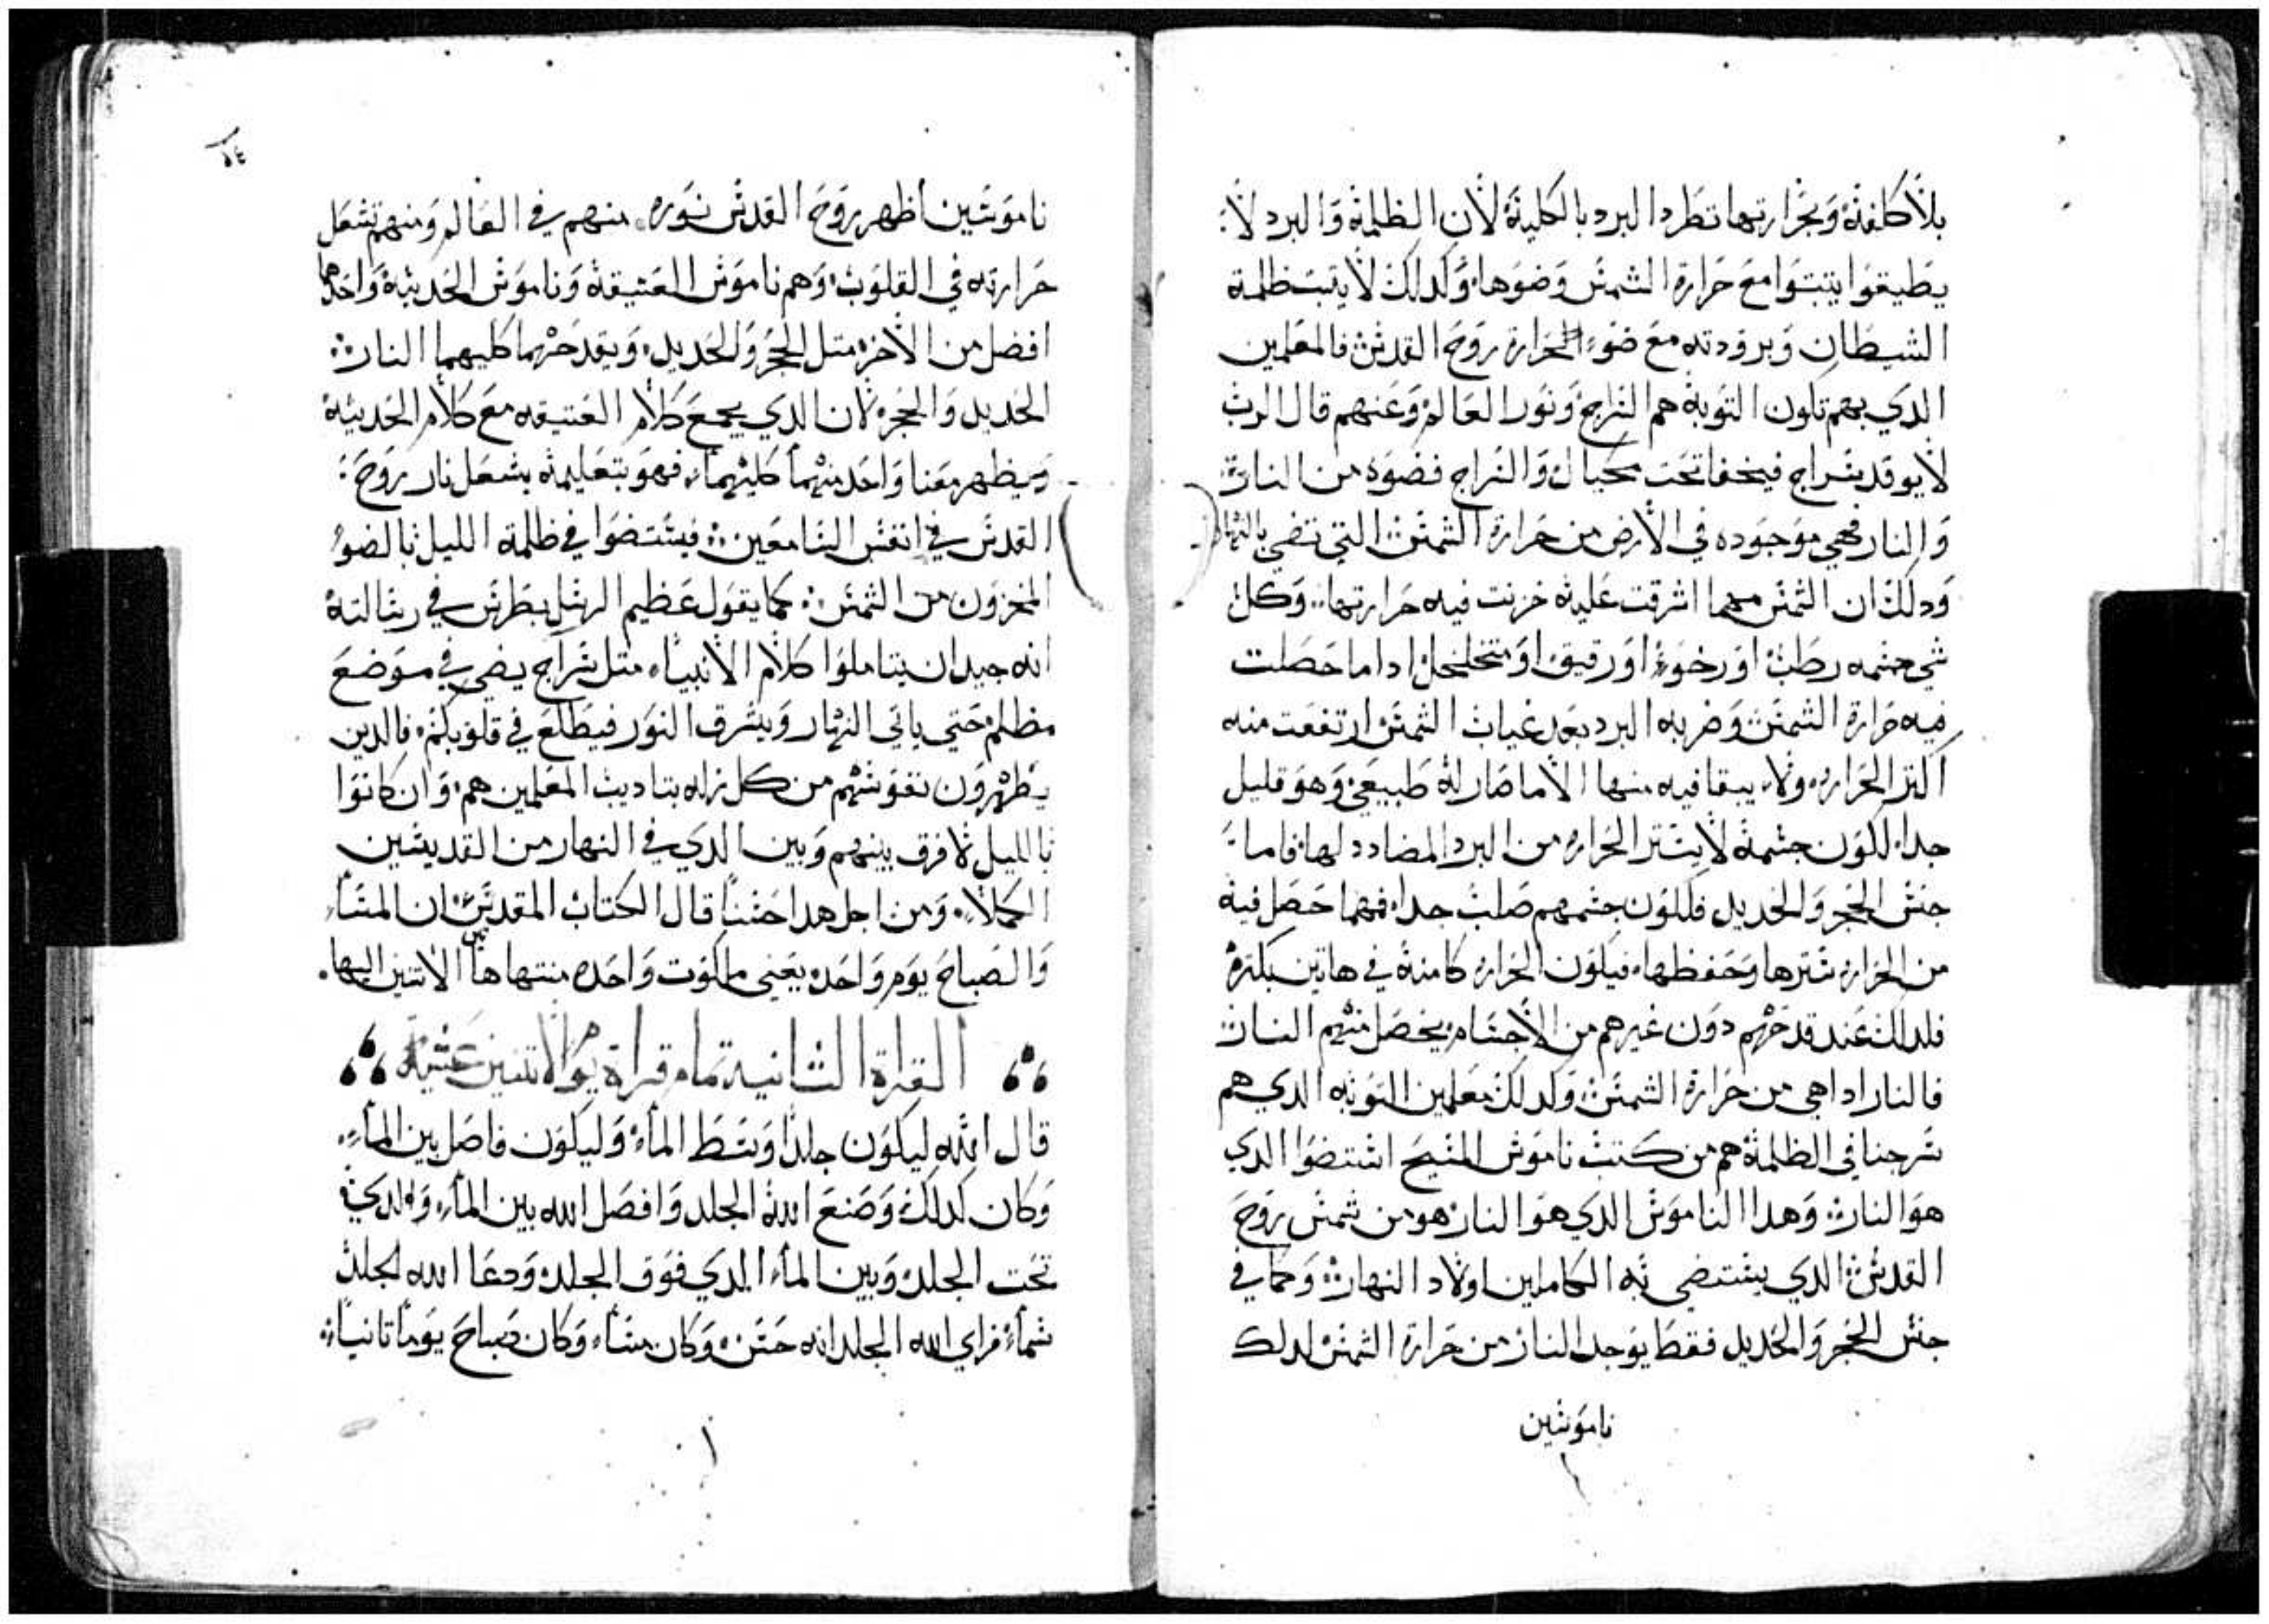 بلا كلفة وبحرارتها تطرد البرد بالكلية لان الظلمة والبرد لا
يطيقوا يتبتوا مع حرارة الشمس وضوها وكدلك لا يتبت ظلمة
الشيطان وبرودته مع ضوء الحرارة روح القدس فالمعلمين
الدي بهم تكون التوبة هم السراج ونور العالم وعنهم قال الرب
لا يوقد سراج فيخفا تحت مكيال والسراج فضوه من النار
والنار فهي موجوده في الارض من حرارة الشمس التي تضي بالنهار
ودلك ان الشمس مهما اشرقت عليه خزنت فيه حرارتها وكل
شي جسمه رطب او رخوء او رقيق او متخلخل ادا ما حصلت
فيه حرارة الشمس وضربه البرد بعد غياب الشمس ارتفعت منه
اكتر الحراره ولا يبقا فيه منها الا ما صار له طبيعي وهو قليل
جدا لكون جسمه لا يستر الحراره من البرد المضادد لها فاما
جنس الحجر والحديد فلكون جسمهم صلب جدا فمهما حصل فيه
من الحراره سترها وحفظها فيكون الحراره كامنة في هاتين بكتره
فلدلك عند قدحهم دون غيرهم من الاجسام يحصل منهم النار
فالنار ادا هي من حرارة الشمس وكدلك معلمين التوبه الدي هم
سرجنا في الظلمة هم من كتب ناموس المسيح استضوا الدي
هو النار وهدا الناموس الدي هو النار هو من شمس روح
القدس الدي يستضي به الكاملين اولاد النهار وكما في
جنس الحجر والحديد فقط يوجد النار من حرارة الشمس لدلك
ناموسين
٥٤
ناموسين اظهر روح القدس نوره منهم في العالم ومنهم تشعل
حرارته في القلوب وهم ناموس العتيقة وناموس الحديثة واحدهما
افضل من الاخر متل الحجر والحديد وبقدحهما كليهما النار
الحديد والحجر لان الدي يجمع كلام العتيقه مع كلام الحديثه
ويظهر معنا واحد منهما كليهما فهو بتعليمه يشعل نار روح
القدس في انفس السامعين فيستضوا في ظلمة الليل بالضوء
المخزون من الشمس كما يقول عظيم الرسل بطرس في رسالته
انه جيد ان يتاملوا كلام الانبياء متل سراج يضي في موضع
مظلم حتي ياتي النهار ويشرق النور فيطلع في قلوبكم فالدين
يطهرون نفوسهم من كل زله بتاديب المعلمين هم وان كانوا
بالليل لا فرق بينهم وبين الدي في النهار من القديسين
الكملاء ومن اجل هدا حسنا قال الكتاب المقدس ان المساء
والصباح يوم واحد يعني ملكوت واحده منتهاها الاتنين اليها
القراة الثانية تمام قراة يوم الاتنين عشية
قال الله ليكون جلدا وسط الماء وليكون فاصل بين الماء
وكان كدلك وصنع الله الجلد وافصل الله بين الماء والدي
تحت الجلد وبين الماء الدي فوق الجلد ودعا الله الجلد
سماء فراي الله الجلد انه حسن وكان مساء وكان صباح يوما تانيا